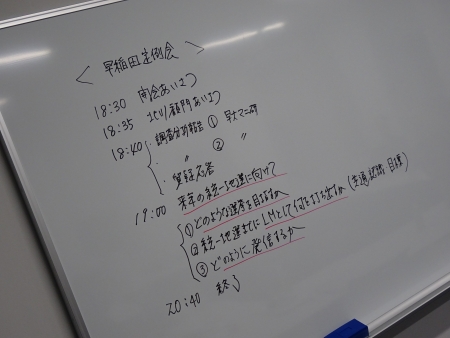 ＜早稲田定例会＞
18:30 開会あいさつ
18:35 北川顧問あいさつ
18:40 ・調査分析報告 ① 早大マニ研
・ 〃 ② 〃
・質疑応答
19:00 来年の統一地選に向けて
①どのような選挙を目指すか
②統一地選までにLMとして何を打ち出すか(共通認識、目標)
③どのように発信するか
20:40 終了